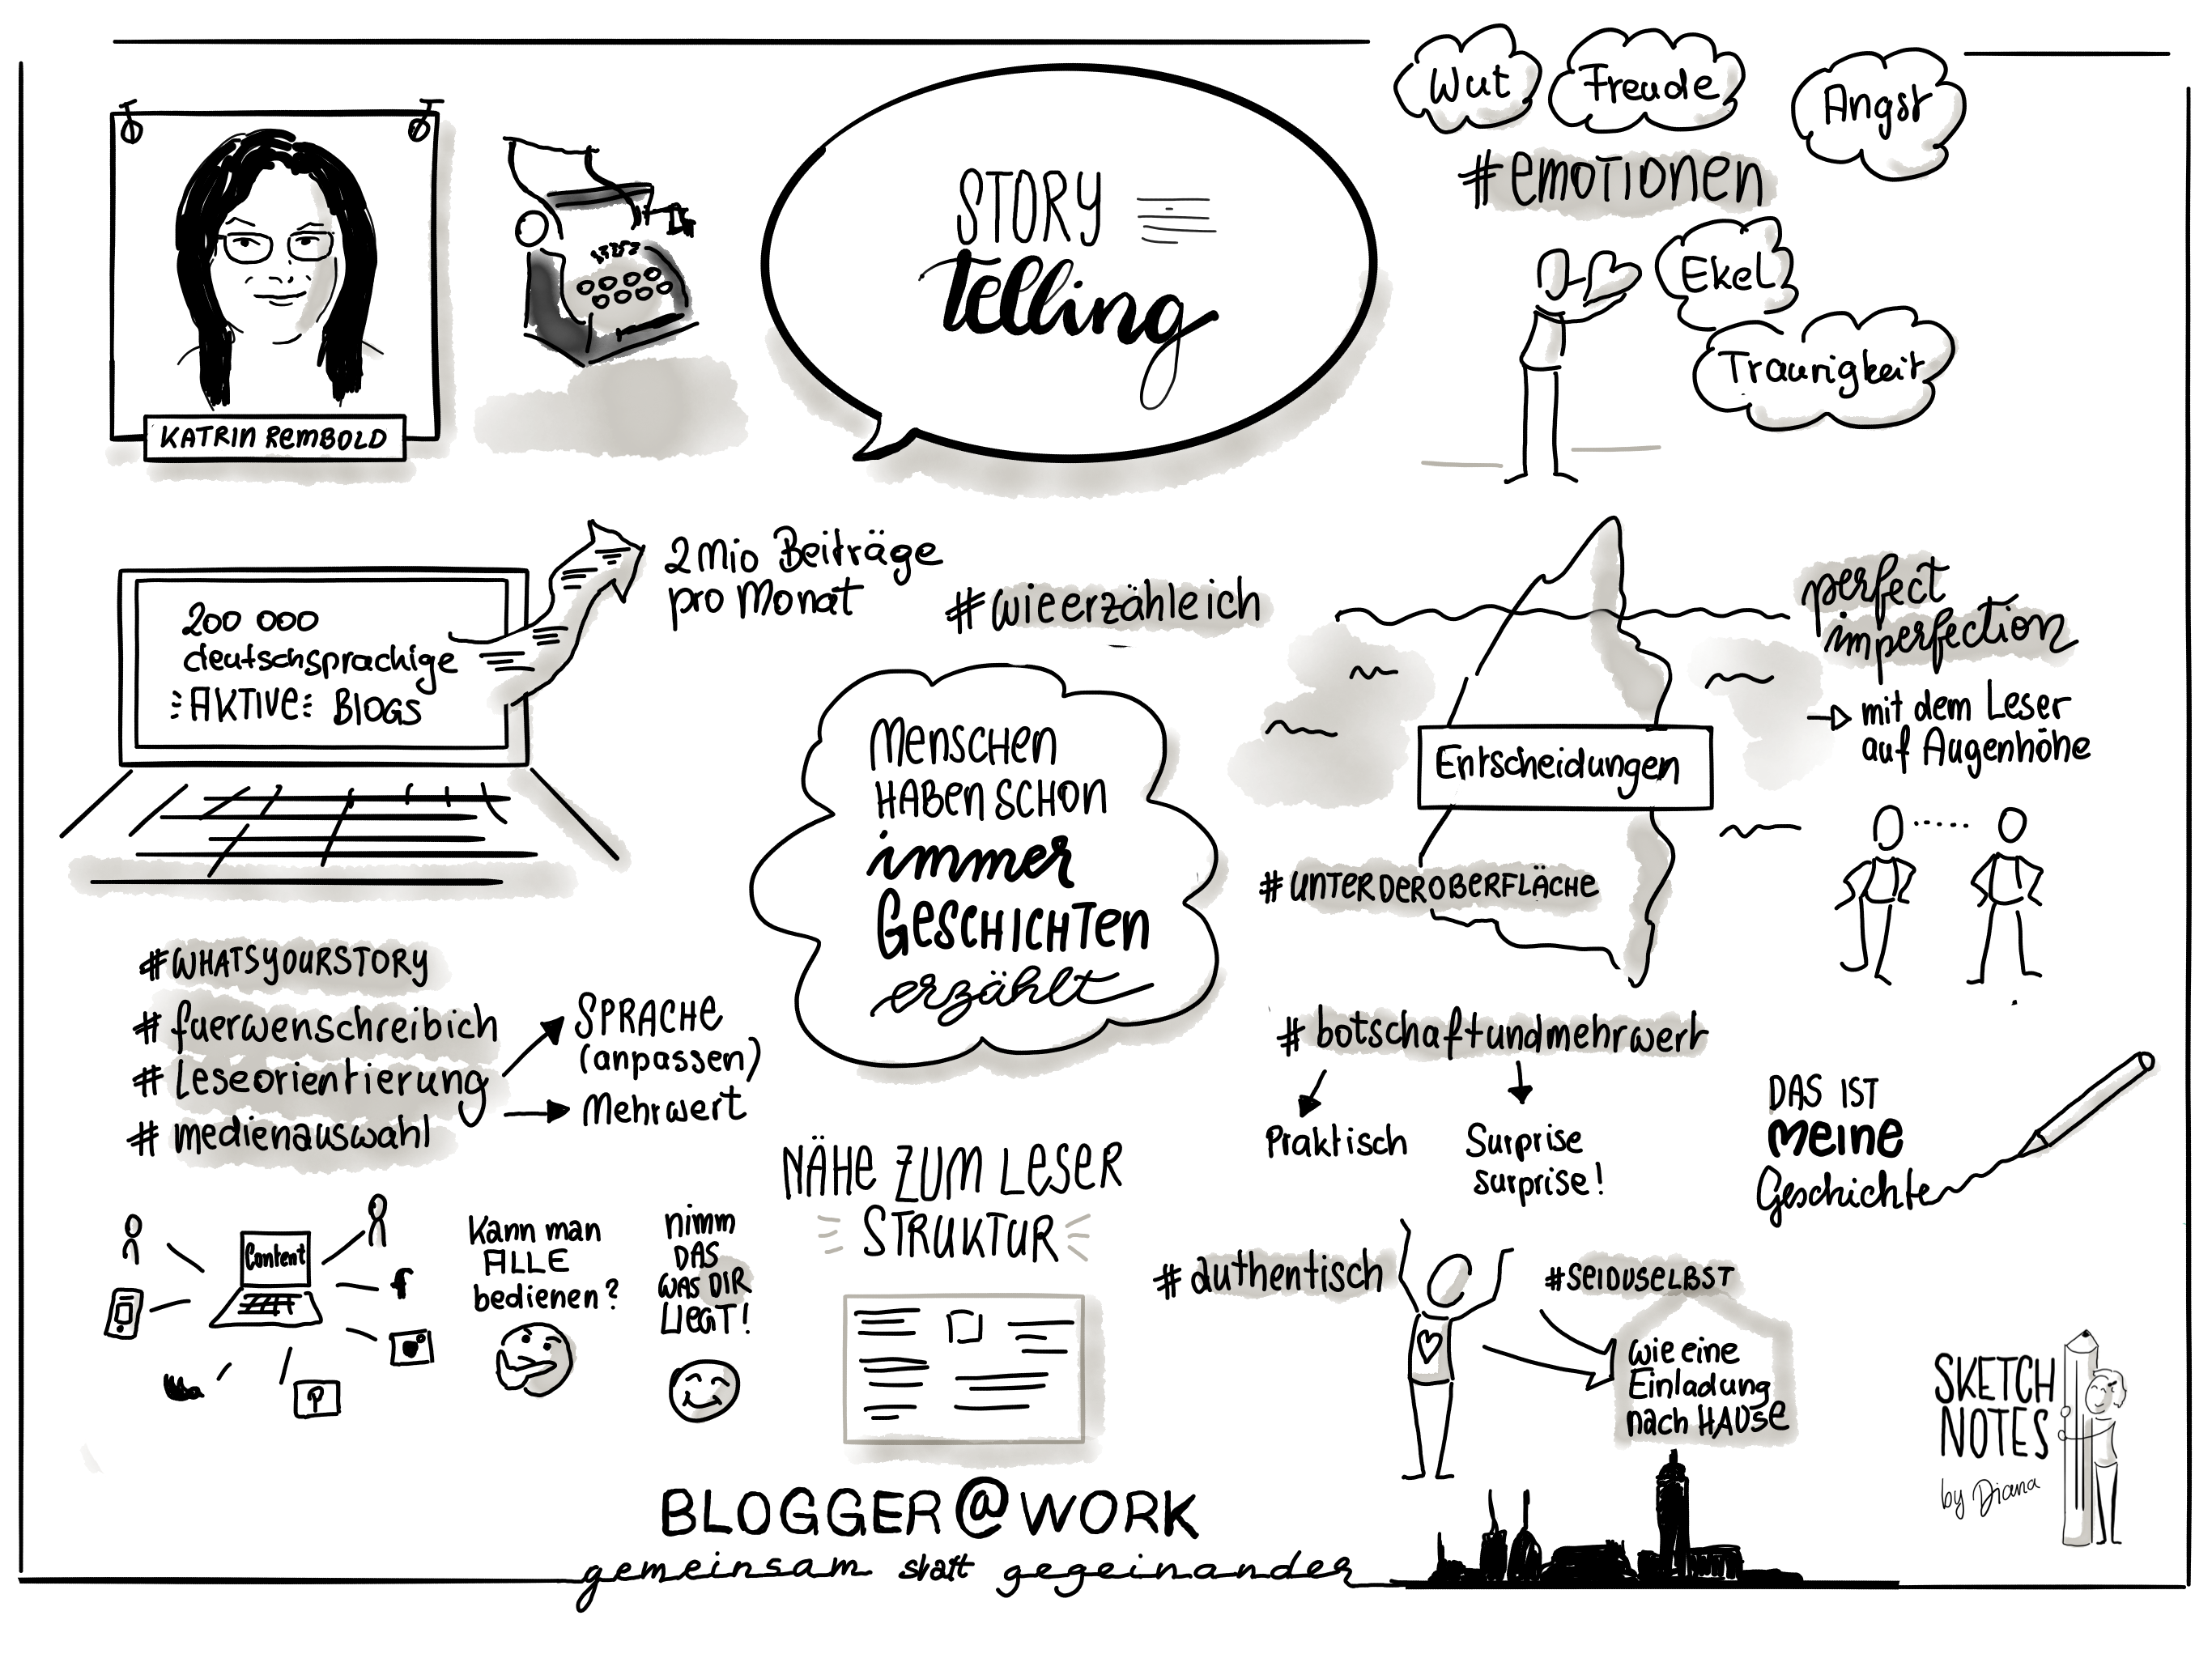 STORY
Telling
KATRIN REMBOLD
Wut
Freude
Angst
#EMOTIONEN
Ekel
Traurigkeit
200 000
deutschsprachige
AKTIVE BLOGS
2 Mio Beiträge
pro Monat
#wieerzähleich
MENSCHEN
HABEN SCHON
immer
GESCHICHTEN
erzählt
Entscheidungen
#UNTERDEROBERFLÄCHE
perfect
imperfection
mit dem Leser
auf Augenhöhe
#WHATSYOURSTORY
#fuerwenschreibich
#Leseorientierung
#medienauswahl
SPRACHE
(anpassen)
Mehrwert
Content
f
P
Kann man
ALLE
bedienen?
nimm
DAS
WAS DIR
LIEGT!
NÄHE ZUM LESER
STRUKTUR
#botschaftundmehrwert
Praktisch
Surprise
surprise!
DAS IST
MEINE
Geschichte
#authentisch
#SEIDUSELBST
wie eine
Einladung
nach HAUSE
BLOGGER@WORK
gemeinsam statt gegeinander
SKETCH
NOTES
by Diana